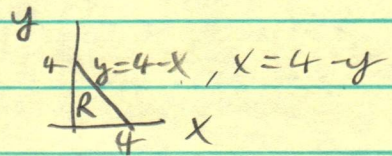 y
4 y=4-x, x=4-y
R
4 x